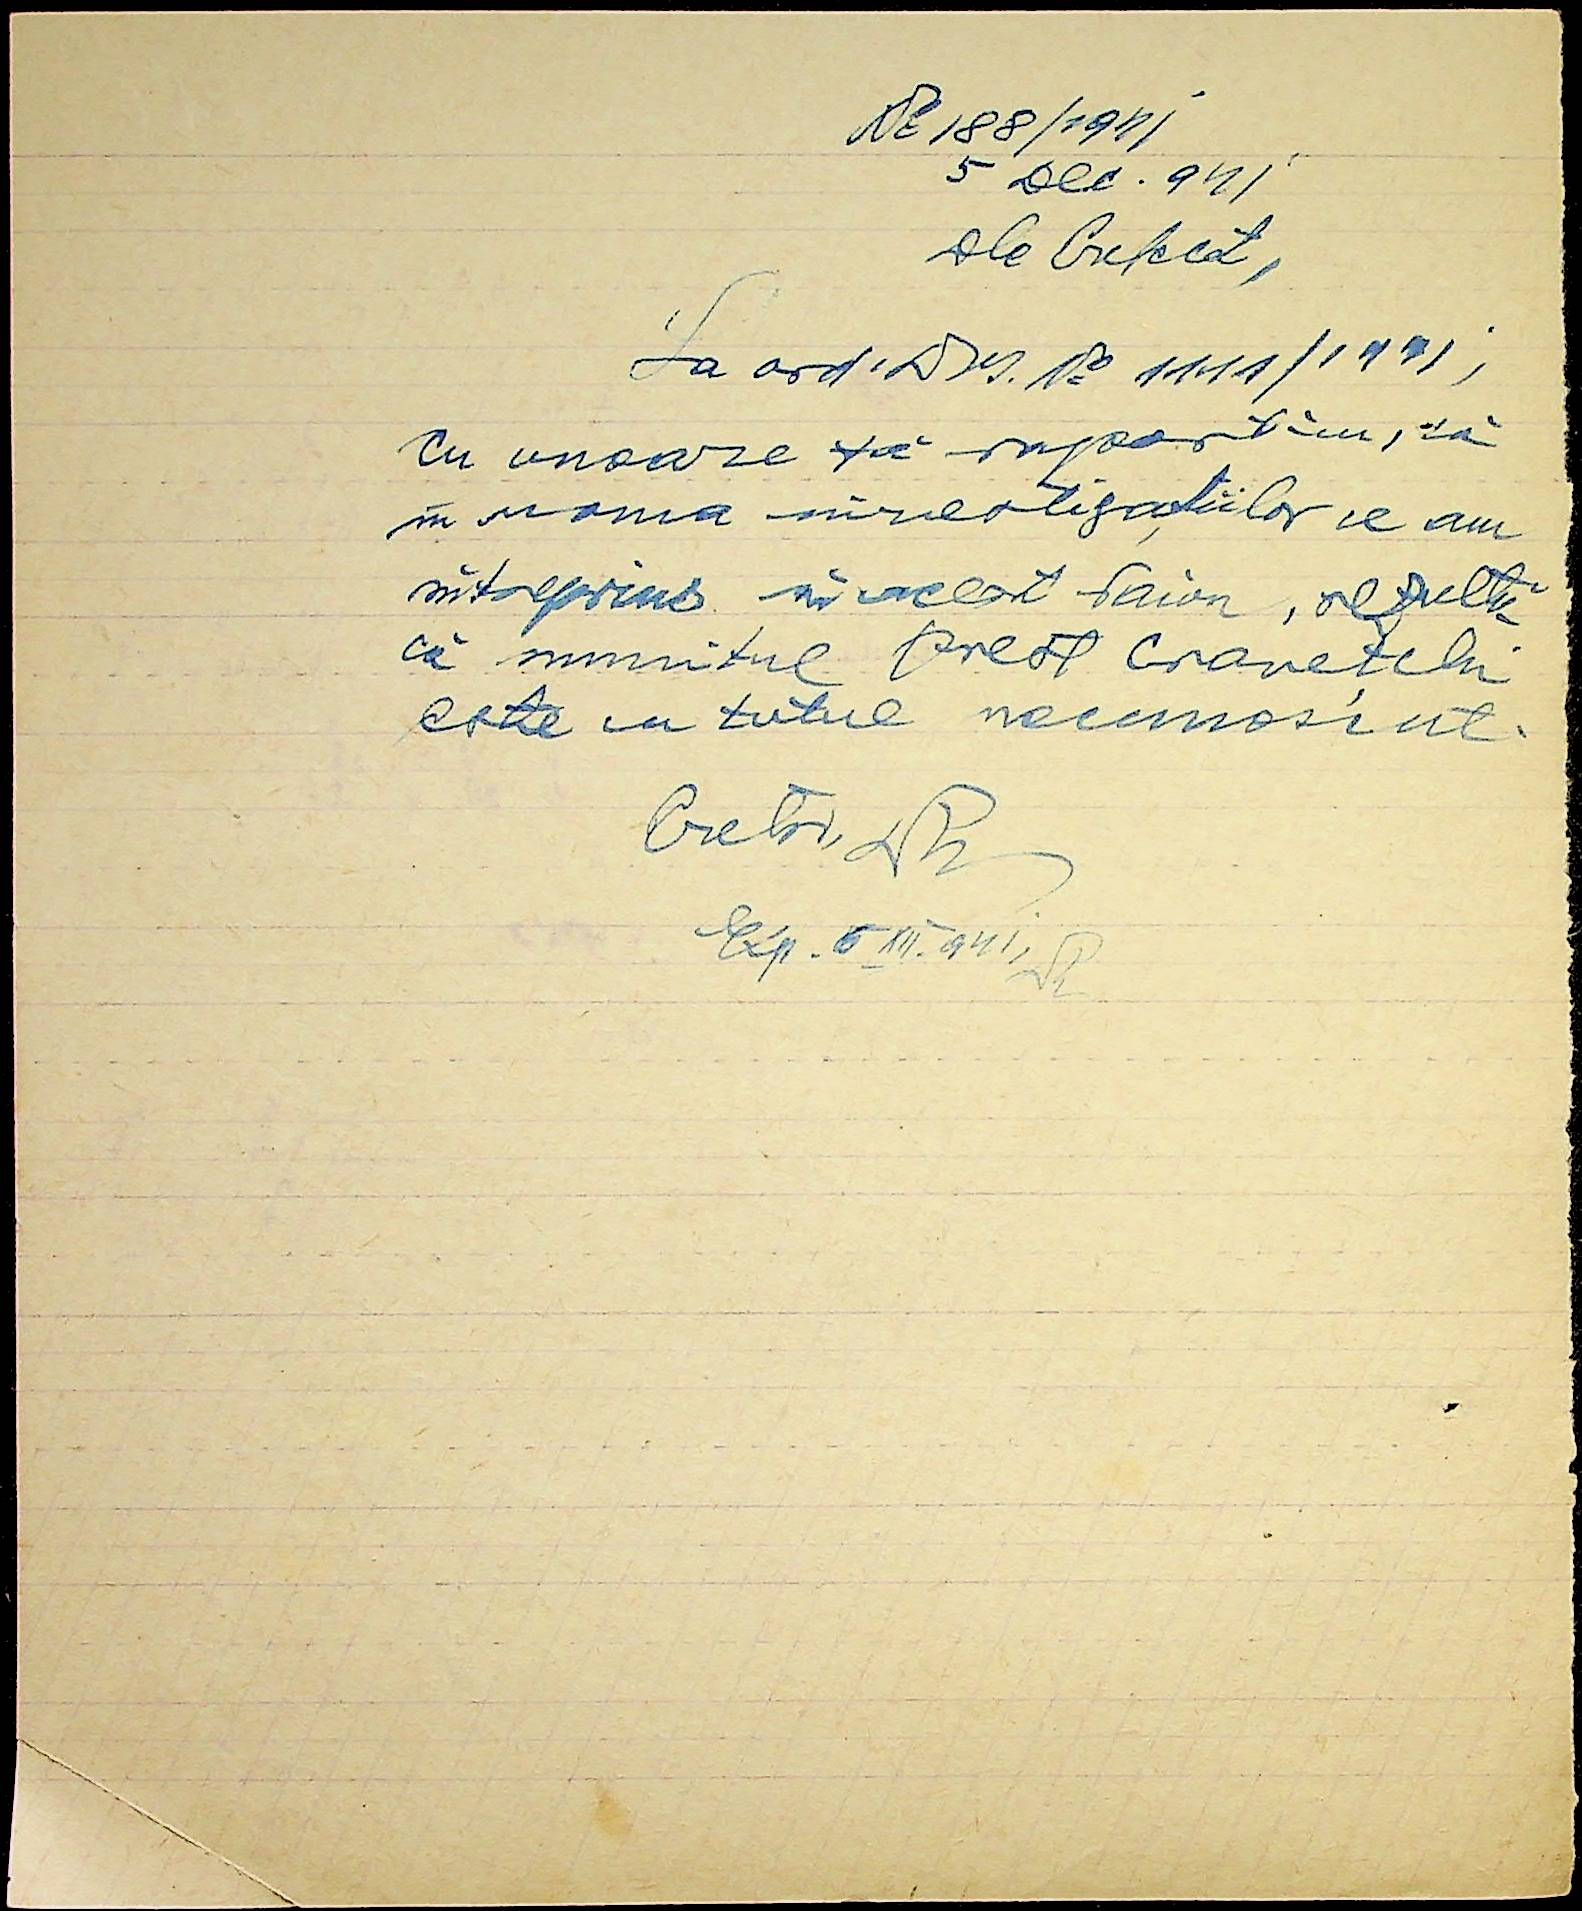 № 188/1941
5 Dec. 941
Dle Prefect,
La ord. Dvs. № 1111/1941,
cu onoare vă raportăm, că
în urma investigațiilor ce am
întreprins în acest raion, rezultă
că numitul Preot Cravețchi
este cu totul necunoscut.
Pretor,
Exp. 5 XII. 941,